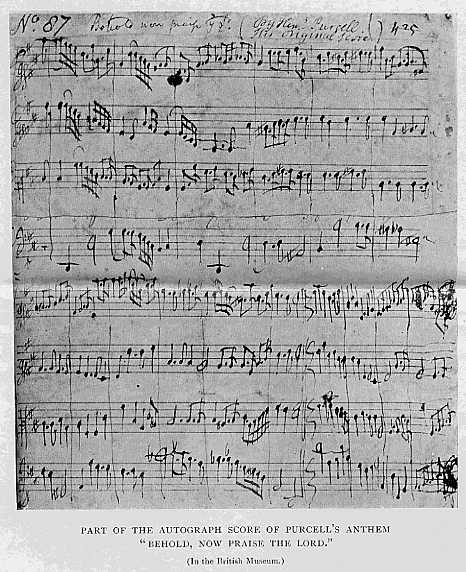 No. 87 Behold now praise ye ( By Henry Purcell ) 425
His original Score
PART OF THE AUTOGRAPH SCORE OF PURCELL'S ANTHEM
"BEHOLD, NOW PRAISE THE LORD."
(In the British Museum.)